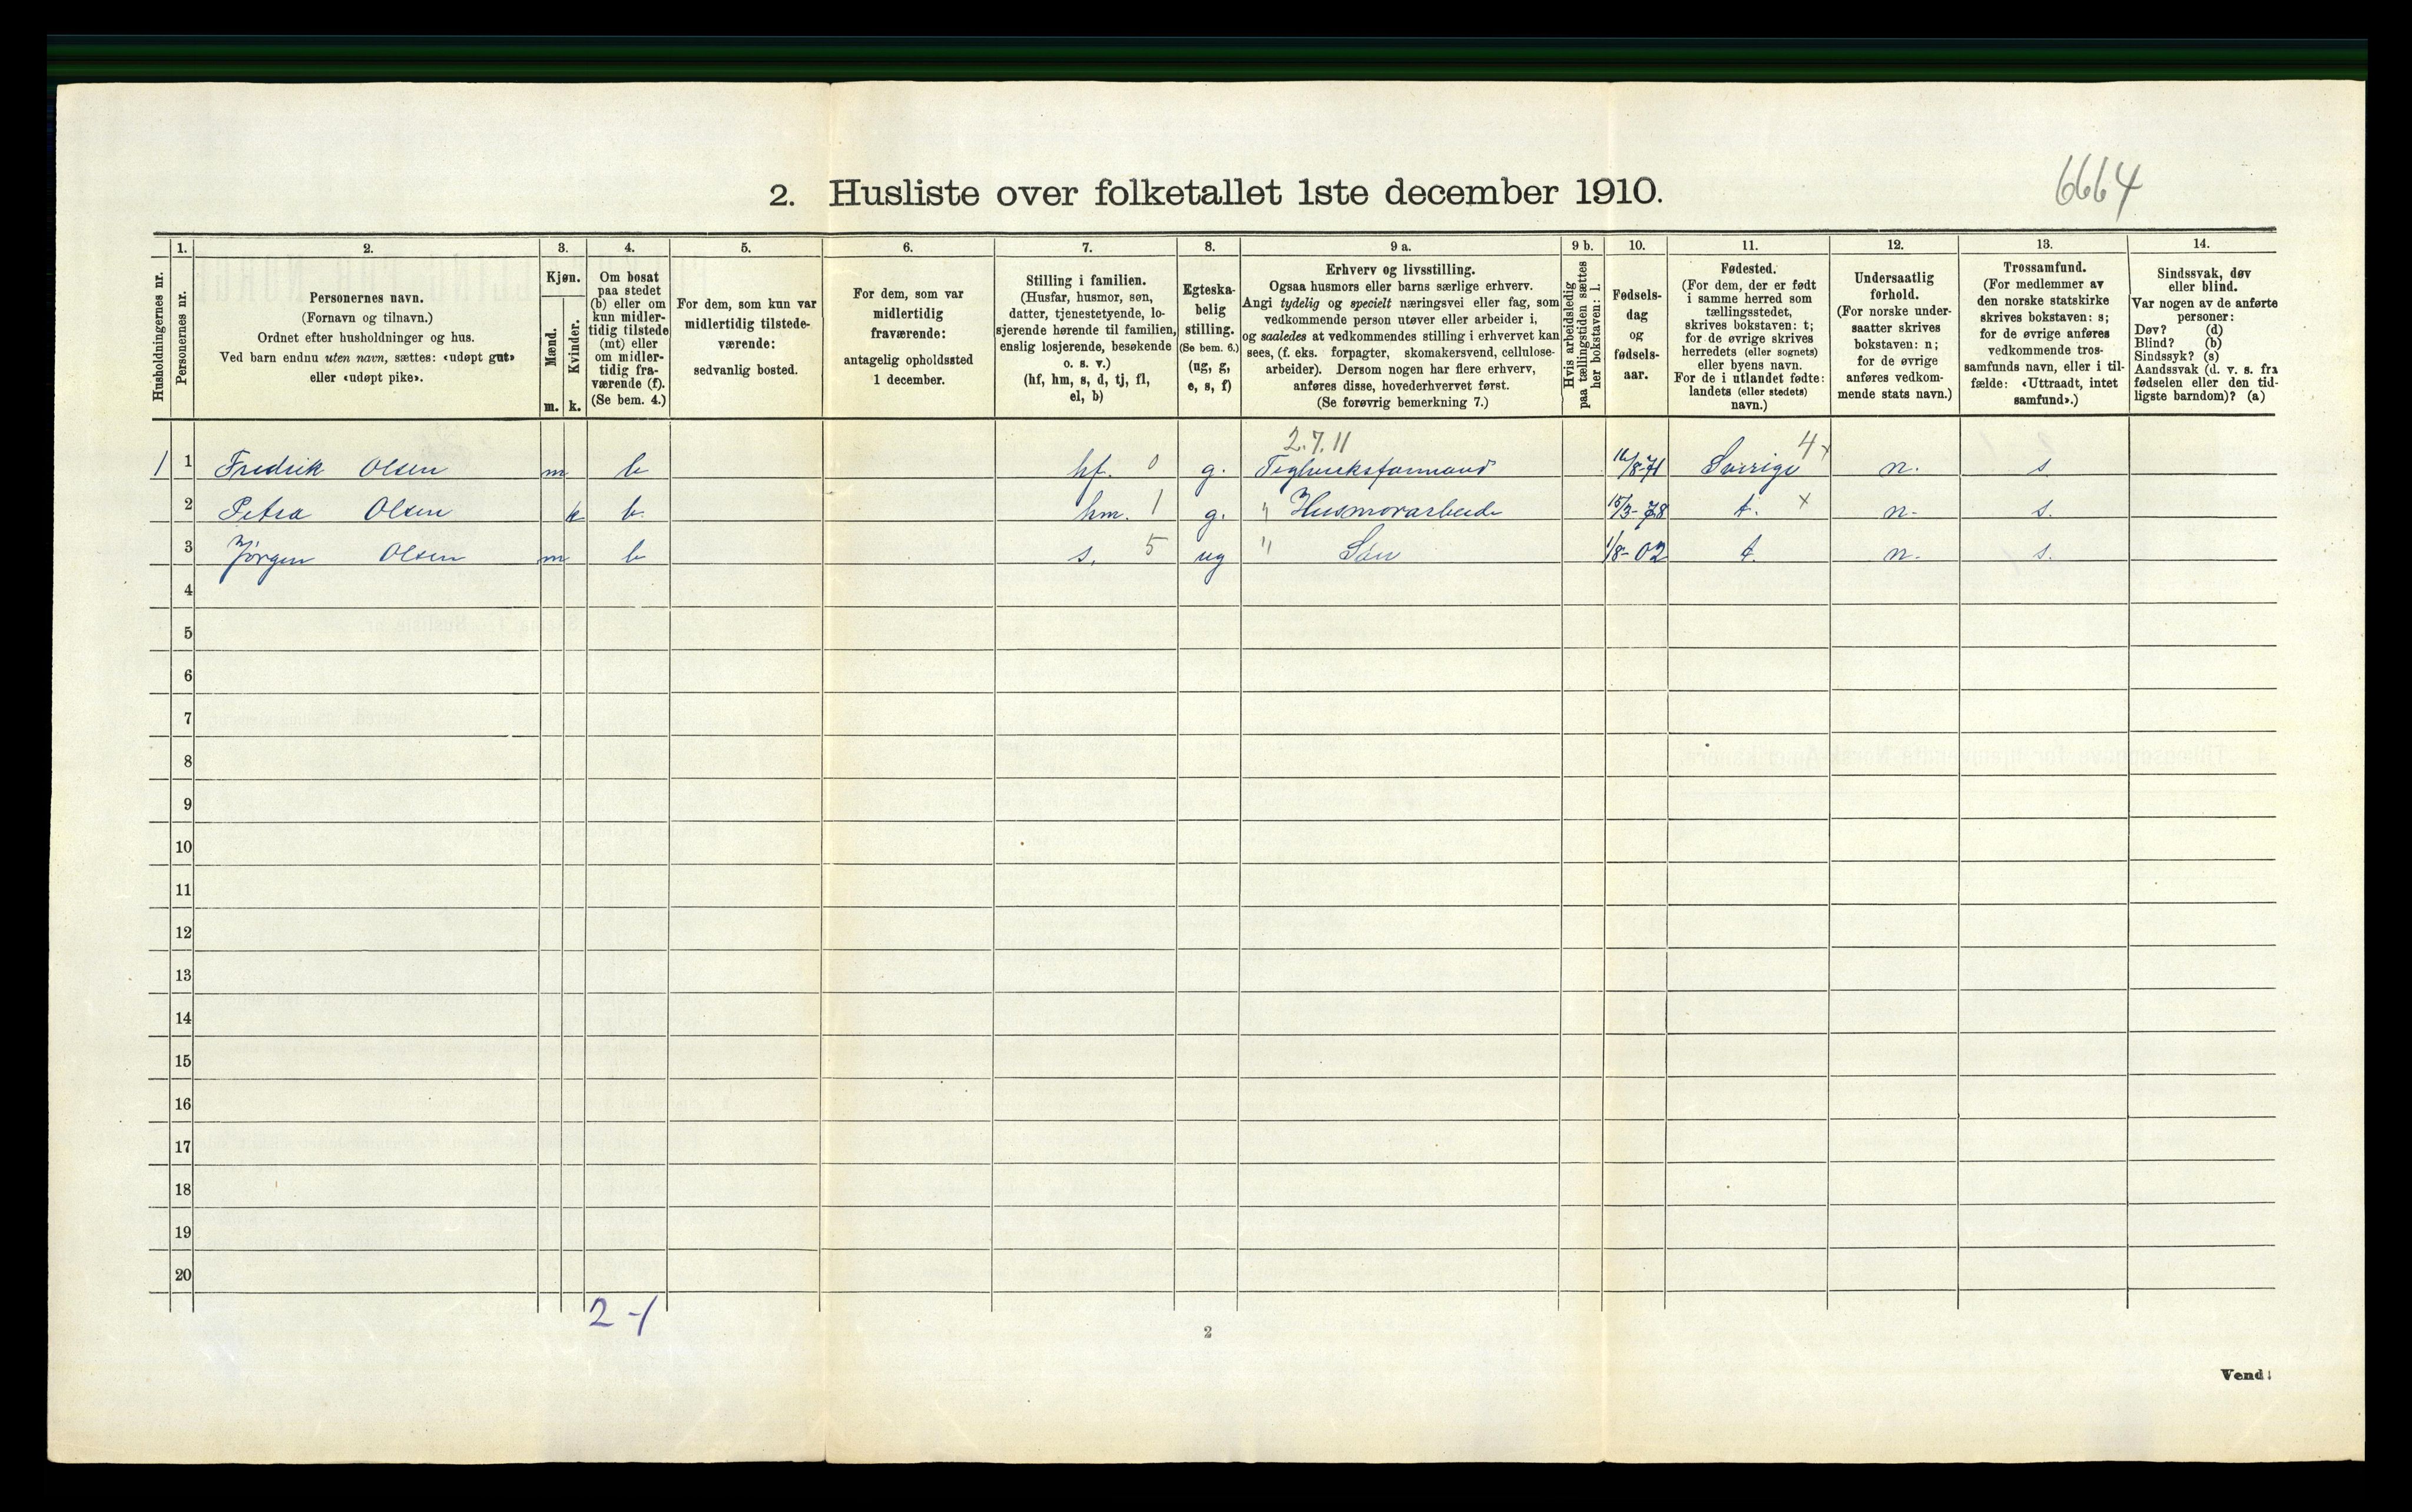 6664
2. Husliste over folketallet 1ste december 1910.
Husholdningernes nr.
1.
Personernes nr.
2.
Personernes navn.
(Fornavn og tilnavn.)
Ordnet efter husholdninger og hus.
Ved barn endnu uten navn, sættes: «udøpt gut»
eller «udøpt pike».
3.
Kjøn.
Mænd.
m.
Kvinder.
k.
4.
Om bosat
paa stedet
(b) eller om
kun midler-
tidig tilstede
(mt) eller
om midler-
tidig fra-
værende (f).
(Se bem. 4.)
5.
For dem, som kun var
midlertidig tilstede-
værende:
sedvanlig bosted.
6.
For dem, som var
midlertidig
fraværende:
antagelig opholdssted
1 december.
7.
Stilling i familien.
(Husfar, husmor, søn,
datter, tjenestetyende, lo-
sjerende hørende til familien,
enslig losjerende, besøkende
o. s. v.)
(hf, hm, s, d, tj, fl,
el, b)
8.
Egteska-
belig
stilling.
(Se bem. 6.)
(ug, g,
e, s, f)
9 a.
Erhverv og livsstilling.
Ogsaa husmors eller barns særlige erhverv.
Angi tydelig og specielt næringsvei eller fag, som
vedkommende person utøver eller arbeider i,
og saaledes at vedkommendes stilling i erhvervet kan
sees, (f. eks. forpagter, skomakersvend, cellulose-
arbeider). Dersom nogen har flere erhverv,
anføres disse, hovederhvervet først.
(Se forøvrig bemerkning 7.)
9 b.
Hvis arbeidsledig
paa tællingstiden sættes
her bokstaven: l.
10.
Fødsels-
dag
og
fødsels-
aar.
11.
Fødested.
(For dem, der er født
i samme herred som
tællingsstedet,
skrives bokstaven: t;
for de øvrige skrives
herredets (eller sognets)
eller byens navn.
For de i utlandet fødte:
landets (eller stedets)
navn.)
12.
Undersaatlig
forhold.
(For norske under-
saatter skrives
bokstaven: n;
for de øvrige
anføres vedkom-
mende stats navn.)
13.
Trossamfund.
(For medlemmer av
den norske statskirke
skrives bokstaven: s;
for de øvrige anføres
vedkommende tros-
samfunds navn, eller i til-
fælde: «Uttraadt, intet
samfund».)
14.
Sindssvak, døv
eller blind.
Var nogen av de anførte
personer:
Døv? (d)
Blind? (b)
Sindssyk? (s)
Aandssvak (d. v. s. fra
fødselen eller den tid-
ligste barndom)? (a)
2.7.11 4x
1 1 Fredrik Olsen m b hf. 0 g. Teglverksformand 16/8-71 Sverige n. s
2 Petra Olsen k b. hm. 1 g. " Husmorarbeide 15/3-78 t. x n. s.
3 Jørgen Olsen m b s. 5 ug " Søn 1/8-02 t. n. s.
4
5
6
7
8
9
10
11
12
13
14
15
16
17
18
19
20
2-1
2
Vend!